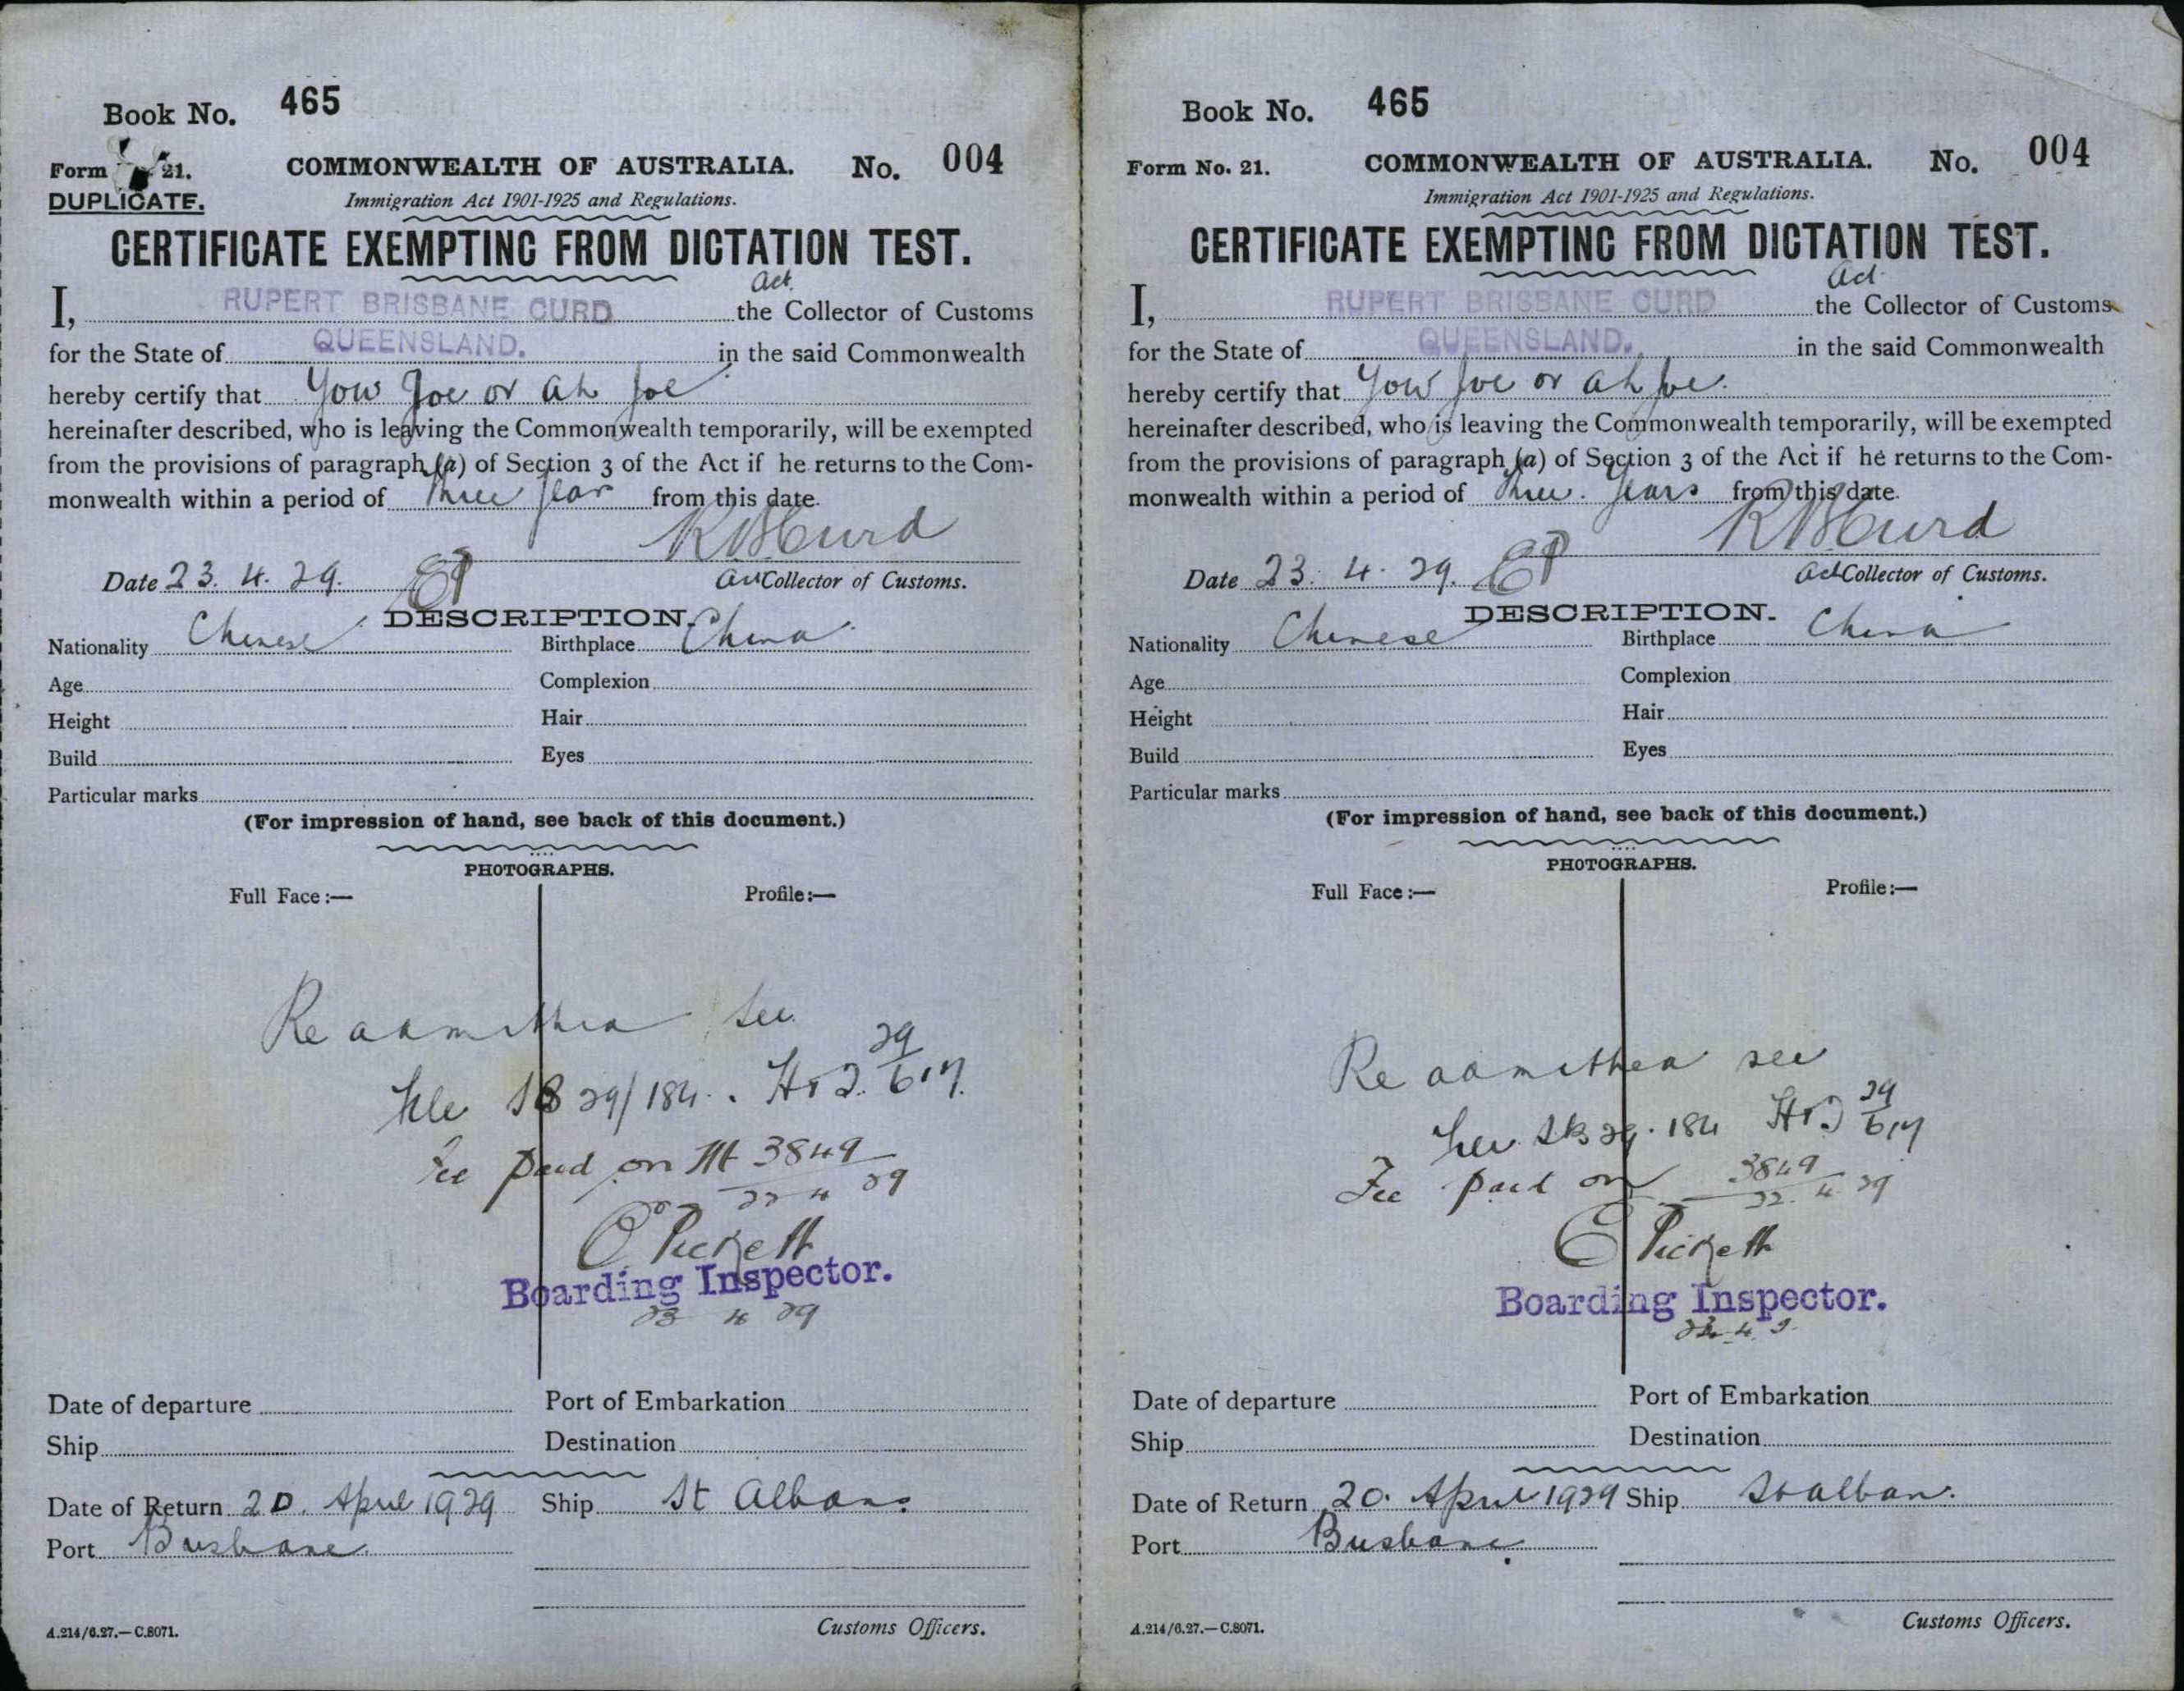 Book No. 465
Form 21. COMMONWEALTH OF AUSTRALIA. No. 004
DUPLICATE. Immigration Act 1901-1925 and Regulations.
CERTIFICATE EXEMPTING FROM DICTATION TEST.
Act.
I, RUPERT BRISBANE CURD the Collector of Customs
for the State of QUEENSLAND. in the said Commonwealth
hereby certify that Yow Joe or Ah Joe
hereinafter described, who is leaving the Commonwealth temporarily, will be exempted
from the provisions of paragraph (a) of Section 3 of the Act if he returns to the Com-
monwealth within a period of three year from this date.
RBCurd
Date 23. 4. 29. EP Act Collector of Customs.
DESCRIPTION.
Nationality Chinese Birthplace China
Age Complexion
Height Hair
Build Eyes
Particular marks
(For impression of hand, see back of this document.)
PHOTOGRAPHS.
Full Face:— Profile:—
see
29/184. 29
Fee paid on 3849
22 4 29
E Pickett
Boarding Inspector.
23 4 29
Date of departure Port of Embarkation
Ship Destination
Date of Return 20. April 1929 Ship St Albans
Port Brisbane
Customs Officers.
A.214/6.27.—C.8071.
Book No. 465
Form No. 21. COMMONWEALTH OF AUSTRALIA. No. 004
Immigration Act 1901-1925 and Regulations.
CERTIFICATE EXEMPTING FROM DICTATION TEST.
Act
I, RUPERT BRISBANE CURD the Collector of Customs
for the State of QUEENSLAND. in the said Commonwealth
hereby certify that Yow Joe or Ah Joe.
hereinafter described, who is leaving the Commonwealth temporarily, will be exempted
from the provisions of paragraph (a) of Section 3 of the Act if he returns to the Com-
monwealth within a period of three Years from this date.
RBCurd
Date 23. 4. 29. EP Act Collector of Customs.
DESCRIPTION.
Nationality Chinese Birthplace China
Age Complexion
Height Hair
Build Eyes
Particular marks
(For impression of hand, see back of this document.)
PHOTOGRAPHS.
Full Face:— Profile:—
see
29.184 29
Fee paid on 3849
22. 4 29
E Pickett
Boarding Inspector.
Date of departure Port of Embarkation
Ship Destination
Date of Return 20. April 1929 Ship St Alban.
Port Brisbane.
Customs Officers.
A.214/6.27.—C.8071.